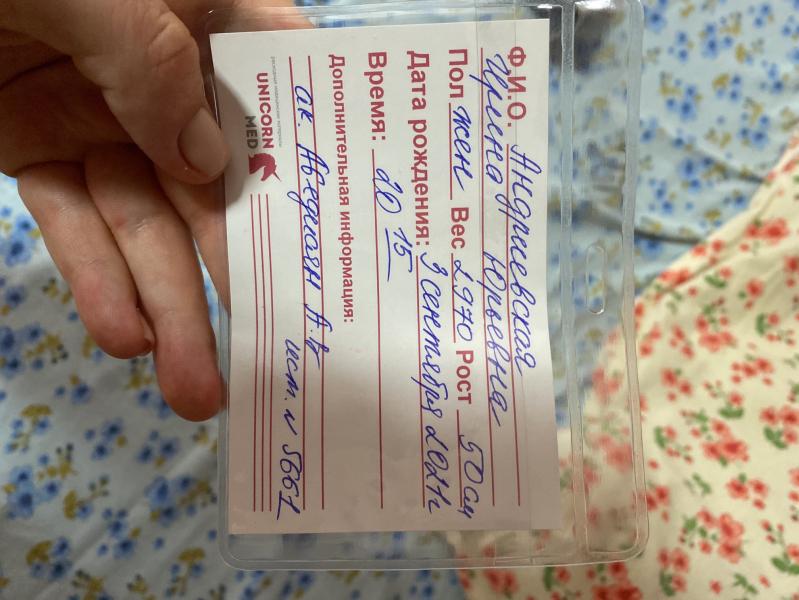 Ф.И.О. Андриевская
Ирина Юрьевна
Пол жен Вес 2970 Рост 50 см
Дата рождения: 3 сентября 2021г
Время: 20 15
Дополнительная информация:
ак. Авединян А.В
ист. N 5661
UNICORN
MED